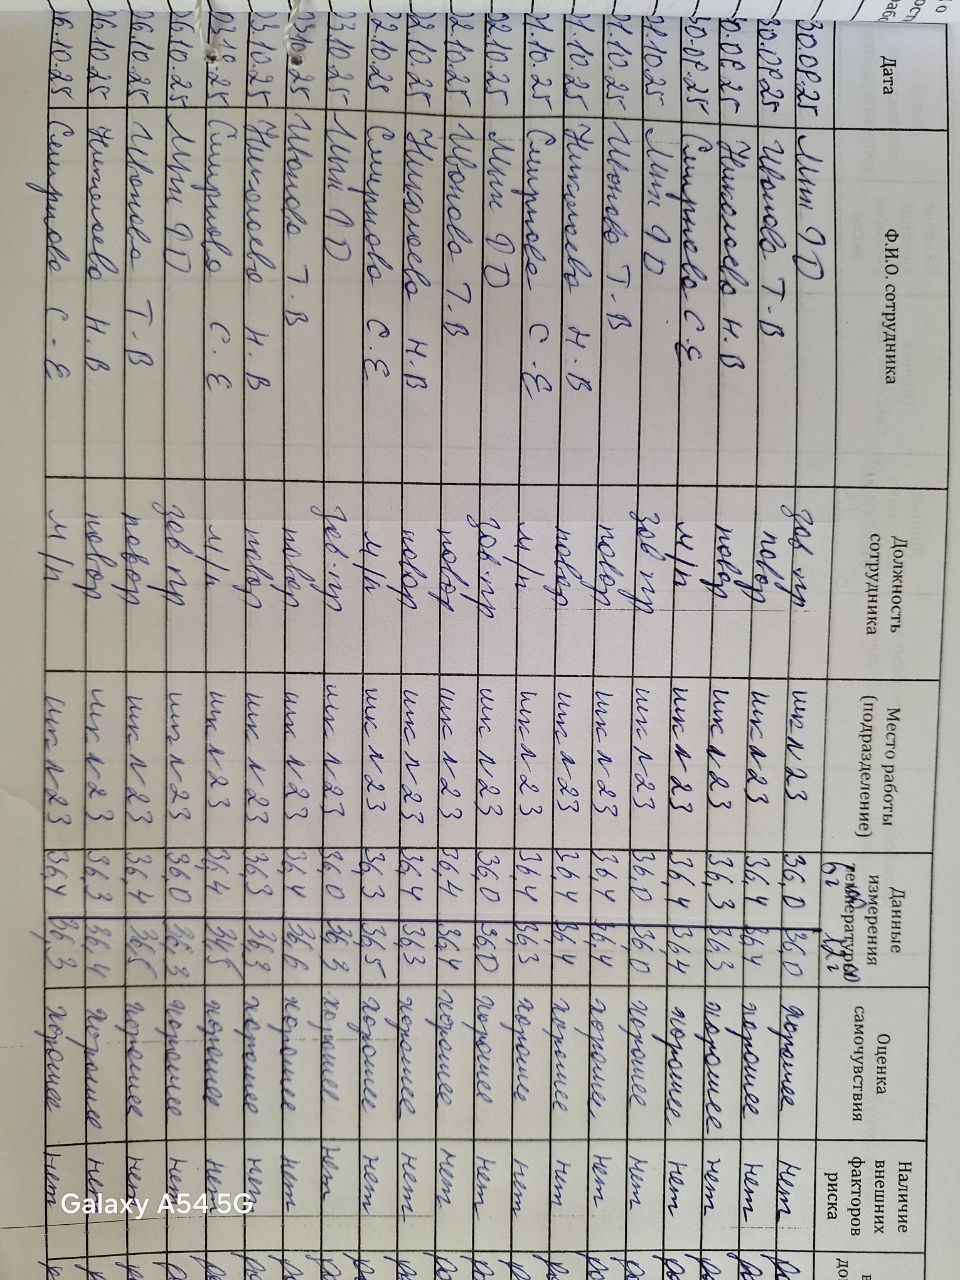 Дата Ф.И.О. сотрудника Должность сотрудника Место работы (подразделение) Данные измерения температуры Оценка самочувствия Наличие внешних факторов риска
30.09.25 зав пр шк N 23 36,0 36,0 хорошее нет
30.09.25 Иванова Т.В повар шк N 23 36,4 36,4 хорошее нет
30.09.25 Николаева Н.В повар шк N 23 36,3 36,3 хорошее нет
30.09.25 Смирнова С.Е м/р шк N 23 36,4 36,4 хорошее нет
01.10.25 зав пр шк N 23 36,0 36,0 хорошее нет
01.10.25 Иванова Т В повар шк N 23 36,4 36,4 хорошее нет
01.10.25 Николаева Н.В повар шк N 23 36,4 36,4 хорошее нет
01.10.25 Смирнова С.Е м/р шк N 23 36,4 36,3 хорошее нет
02.10.25 зав.пр шк N 23 36,0 36,0 хорошее нет
02.10.25 Иванова Т.В повар шк N 23 36,4 36,4 хорошее нет
02.10.25 Николаева Н.В повар шк N 23 36,4 36,3 хорошее нет
02.10.25 Смирнова С.Е м/р шк N 23 36,3 36,5 хорошее нет
03.10.25 зав.пр шк N 23 36,0 36,3 хорошее нет
03.10.25 Иванова Т.В повар шк N 23 36,4 36,6 хорошее нет
03.10.25 Николаева Н.В повар шк N 23 36,3 36,3 хорошее нет
03.10.25 Смирнова С.Е м/р шк N 23 36,4 34,5 хорошее нет
06.10.25 зав пр шк N 23 36,0 36,3 хорошее нет
06.10.25 Иванова Т.В повар шк N 23 36,4 36,5 хорошее нет
06.10.25 Николаева Н.В повар шк N 23 36,3 36,4 хорошее нет
06.10.25 Смирнова С.Е м/р шк N 23 36,4 36,3 хорошее нет
Galaxy A54 5G